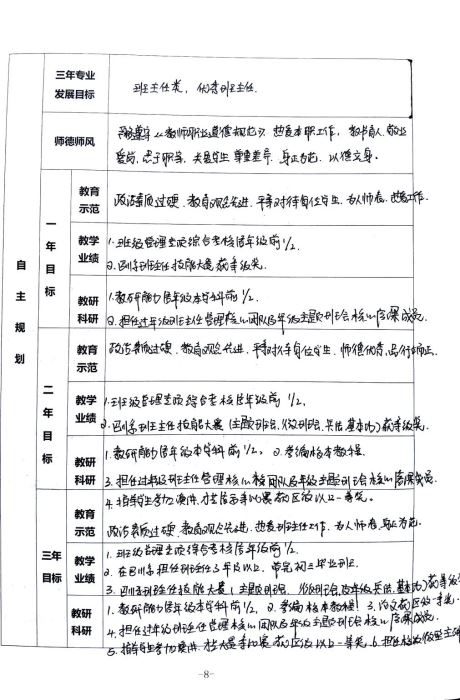 三年专业
发展目标
班主任类，优秀班主任。
师德师风
教师职业道德规范》热爱本职工作，教书育人，敬业
爱岗，忠于职守，关爱学生，尊重差异，身正为范，以德立身。
自主规划
一年目标
教育
示范
政治素质过硬、教育观念先进、平等对待每位学生、为人师表，热爱工作。
教学
业绩
1.班级管理常规综合考核居年级前1/2。
2.班主任技能大赛获等级奖。
教研
科研
1.教研能力居年级本学科前1/2。
2.担任过年级班主任管理核心团队及年级主题班会核心成员。
二年目标
教育
示范
政治素质过硬、教育观念先进、平等对待每位学生、师德优秀、品行端正。
教学
业绩
1.班级管理常规综合考核居年级前1/2。
2.班主任技能大赛（主题班会、微班会、基本功）获等级奖。
教研
科研
1.教研能力居年级本学科前1/2，2.参编校本教程。
3.担任过年级班主任管理核心团队及年级主题班会核心成员
4.指导学生参加比赛获区级以上一等奖。
三年
目标
教育
示范
政治素质过硬、教育观念先进、热爱班主任工作、为人师表，身正为范。
教学
业绩
1.班级管理常规综合考核居年级前1/2。
2.在担任班主任3年及以上，带完初三毕业班
3.班主任技能大赛（主题班会、微班会、基本功）获等级
教研
科研
1.教研能力居年级本学科前1/2，2.参编校本教程！3.论文获区级一等奖。
4.担任过年级班主任管理核心团队及年级主题班会核心成员。
5.指导学生参加比赛获区级以上一等奖 6.担任
-8-